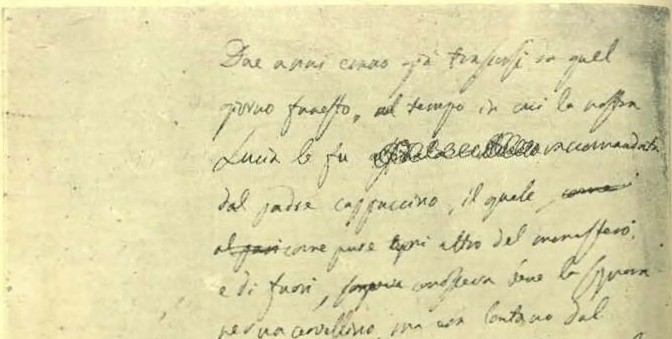 Due anni erano già trascorsi da quel
giorno funesto, al tempo in cui la nostra
Lucia le fu raccomandata
dal padre cappuccino, il quale come
al pari come pure ogni altro del monastero,
e di fuori, conosceva bene la Signora
per una cervellina, ma era lontano dal